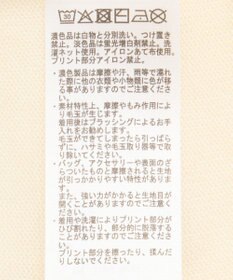 30
濃色品は白物と分別洗い。つけ置き
禁止。淡色品は蛍光増白剤禁止。洗
濯ネット使用。アイロンあて布使用。
プリント部分アイロン禁止。
・濃色製品は摩擦や汗、雨等で濡れ
た際に他の衣類や小物類に色が移
る事が御座いますのでご注意くださ
い。
・素材特性上、摩擦やもみ作用により
毛玉が生じます。
着用後はブラッシングによるお手
入れをお勧めします。
毛玉ができてしまったら引っぱら
ずに、ハサミや毛玉取り器等で取
り除いてください。
・バッグ、アクセサリーや表面のざら
ついたものと摩擦されると生地が
引っかかりやすい特性があります。
また、強い力がかかると生地目が
開くことがありますのでご注意くだ
さい。
・着用や洗濯によりプリント部分が
ひび割れたり、部分的に脱落する
ことがありますのでご注意ください。
プリント部分を擦ったり、揉んだ
りしないでください。